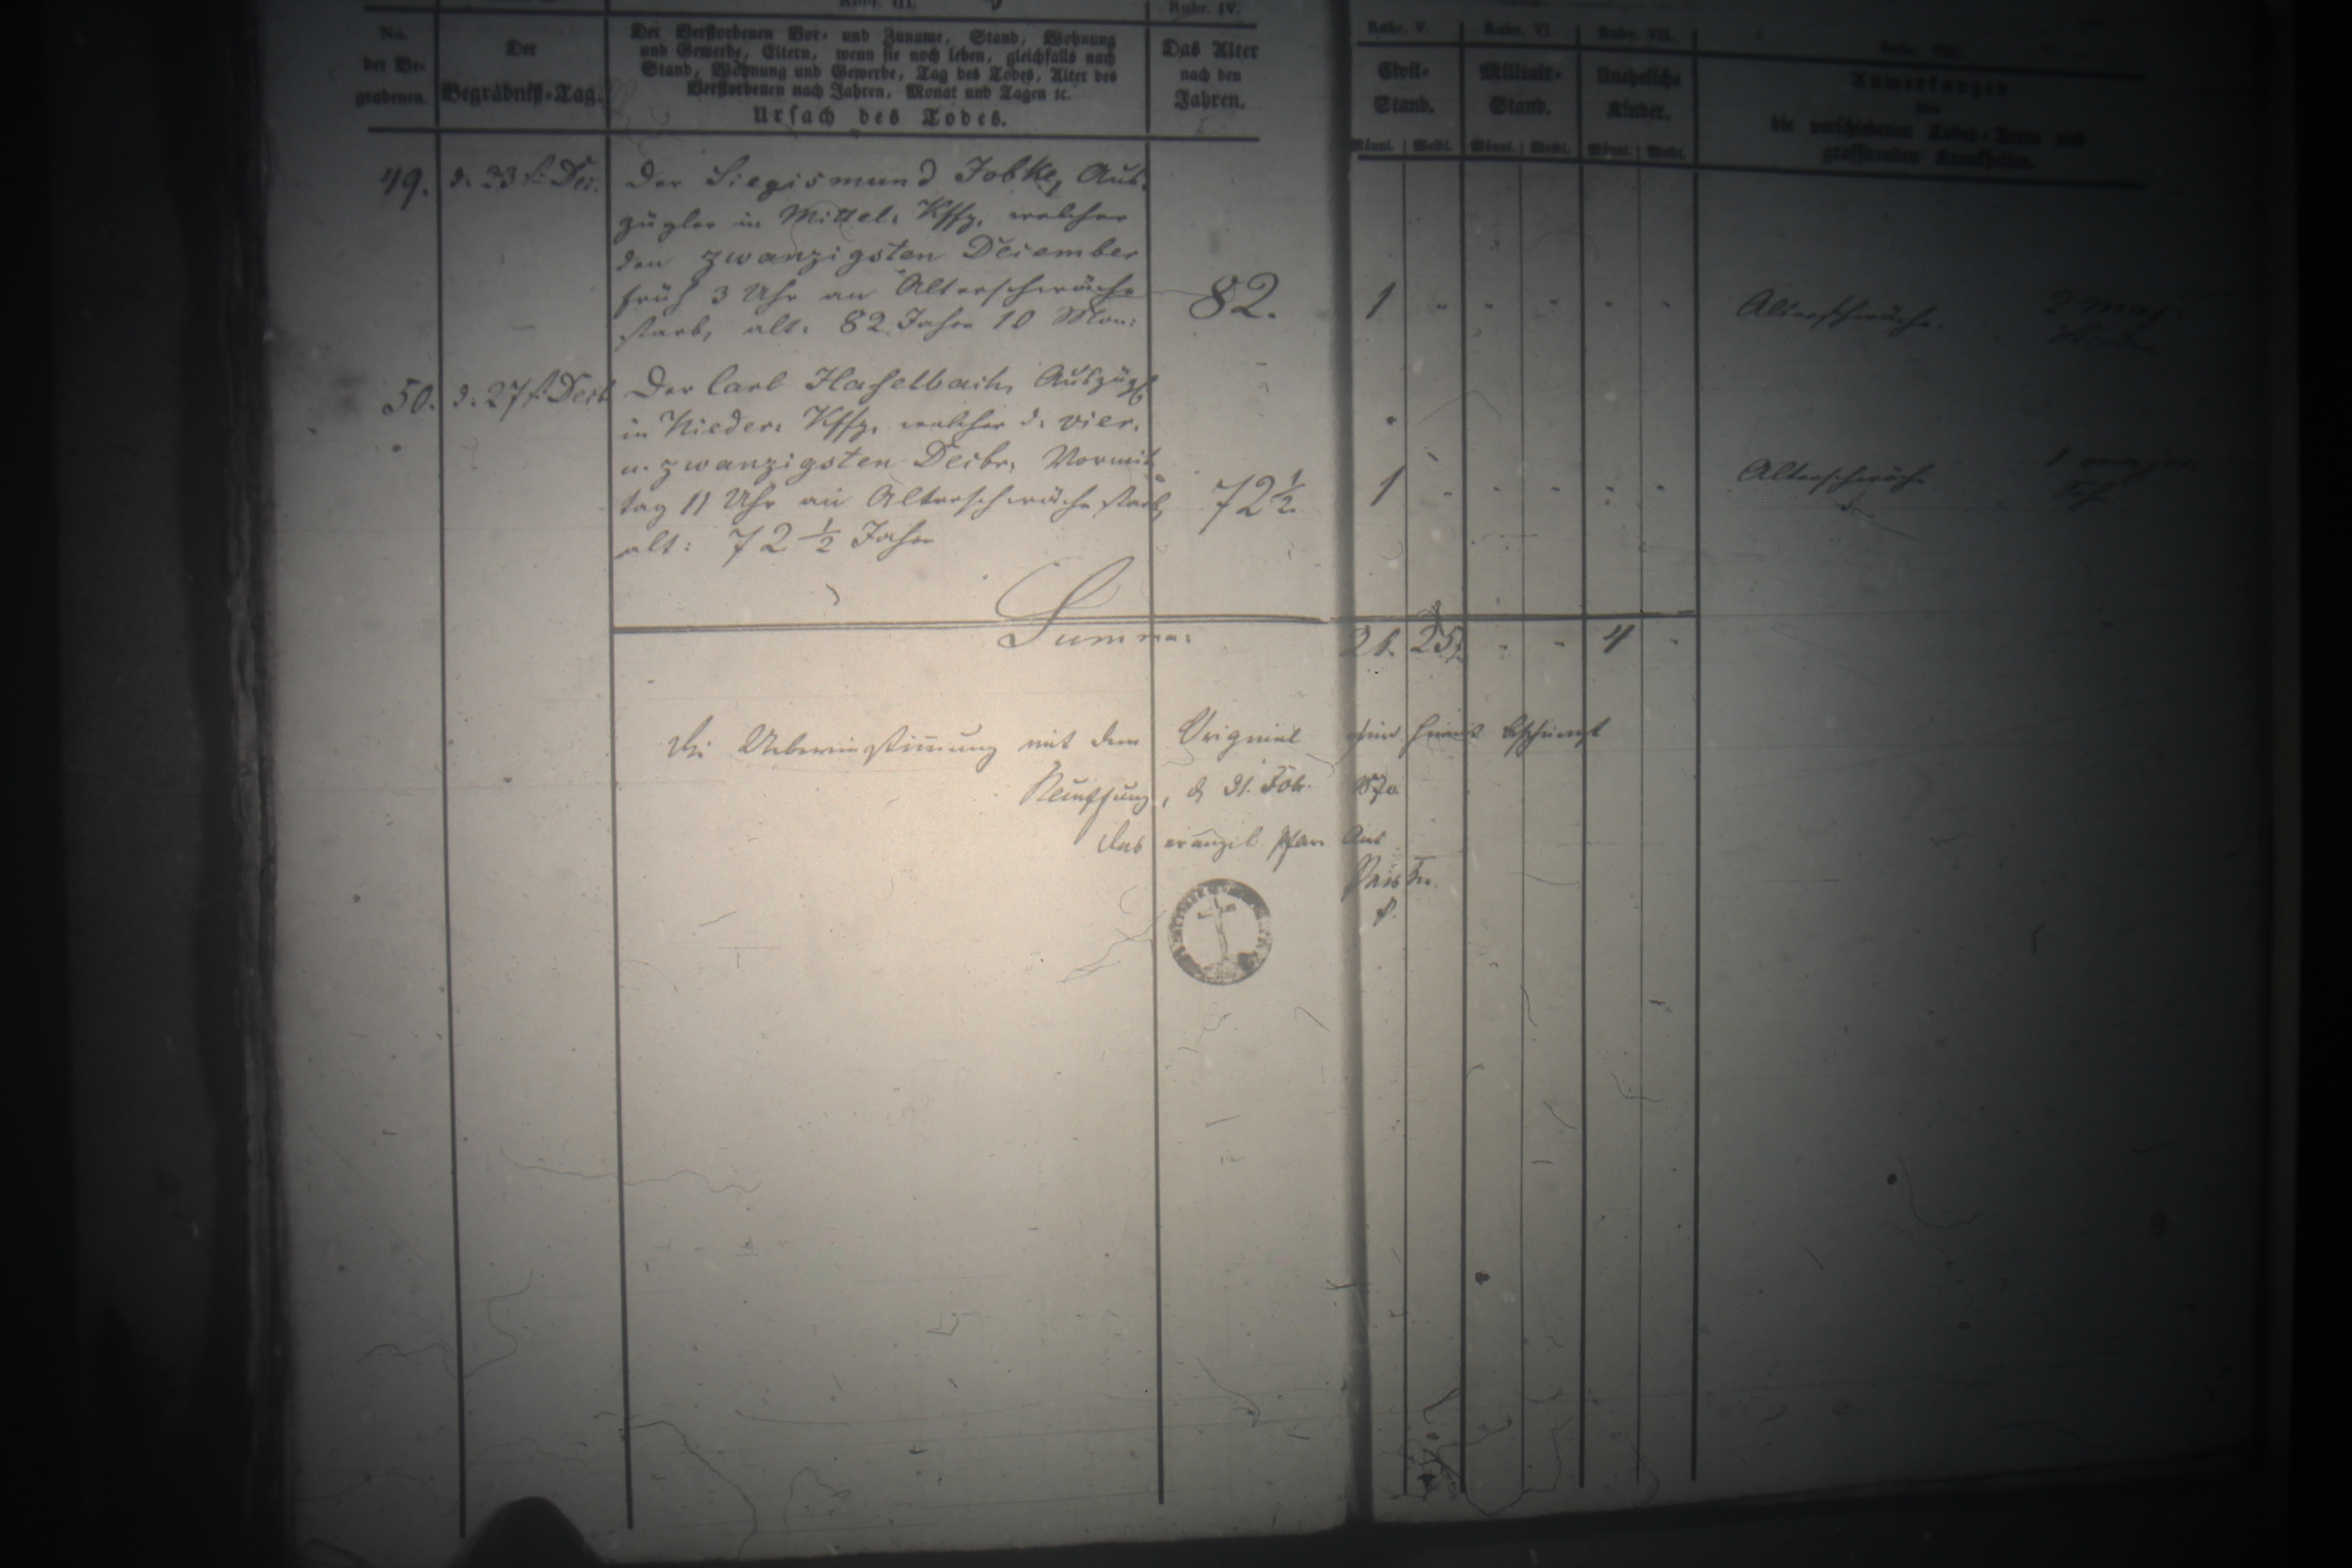 Rubr. III.
Rubr. IV.
Rubr. V.
Rubr. VI.
Rubr. VII.
Rubr. VIII.
No.
der Be-
grabenen.
Der
Begräbniß-Tag.
Der Verstorbenen Vor- und Zuname, Stand, Wohnung
und Gewerbe, Eltern, wenn sie noch leben, gleichfalls nach
Stand, Wohnung und Gewerbe, Tag des Todes, Alter des
Verstorbenen nach Jahren, Monat und Tagen ec.
Ursach des Todes.
Das Alter
nach den
Jahren.
Civil-
Stand.
Männl. Weibl.
Militair-
Stand.
Männl. Weibl.
Uneheliche
Kinder.
Männl. Weibl.
Anmerkungen
über
die verschiedenen Todes-Arten und
grassirenden Krankheiten.
49. d. 23 Dec.
Der Siegismund Jobke, Aus-
zügler in Mittel: Kffg. welcher
den zwanzigsten December
früh 3 Uhr an Alterschwäche
starb, alt: 82 Jahre 10 Mon:
82.
1
Alterschwäche.
2 maj:
50. d. 27 Decb
Der Carl Haselbach, Auszügl
in Nieder: Kffg. welcher d. vier.
u. zwanzigsten Decbr. Vormit
tag 11 Uhr an Alterschwäche starb,
alt: 72 1/2 Jahre
72 1/2
1
Alterschwäche
1 major
Summa:
21. 25. 4
Die Uebereinstimmung mit dem Original wird hiermit bescheinigt
d. 31. 1870.
Das evangel. Pfarr Amt